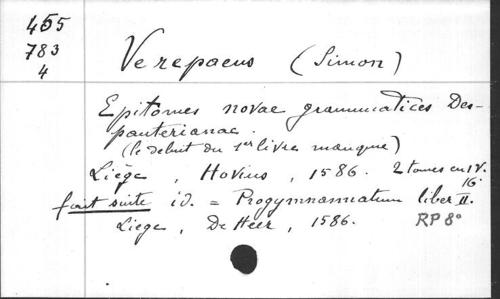 455
783
4
Verepaeus (Simon)
Epitomes novae grammatices Des-
pauterianae.
(le debut du 1er livre manque)
Liège, Hovius, 1586. 2 tomes en 1 V.
16°
font suite id. = Progymnasmatum liber II.
Liege, De Heer, 1586. RP 8°